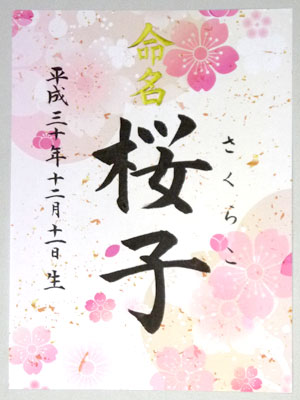 命名
桜子
さくらこ
平成三十年十二月十一日生